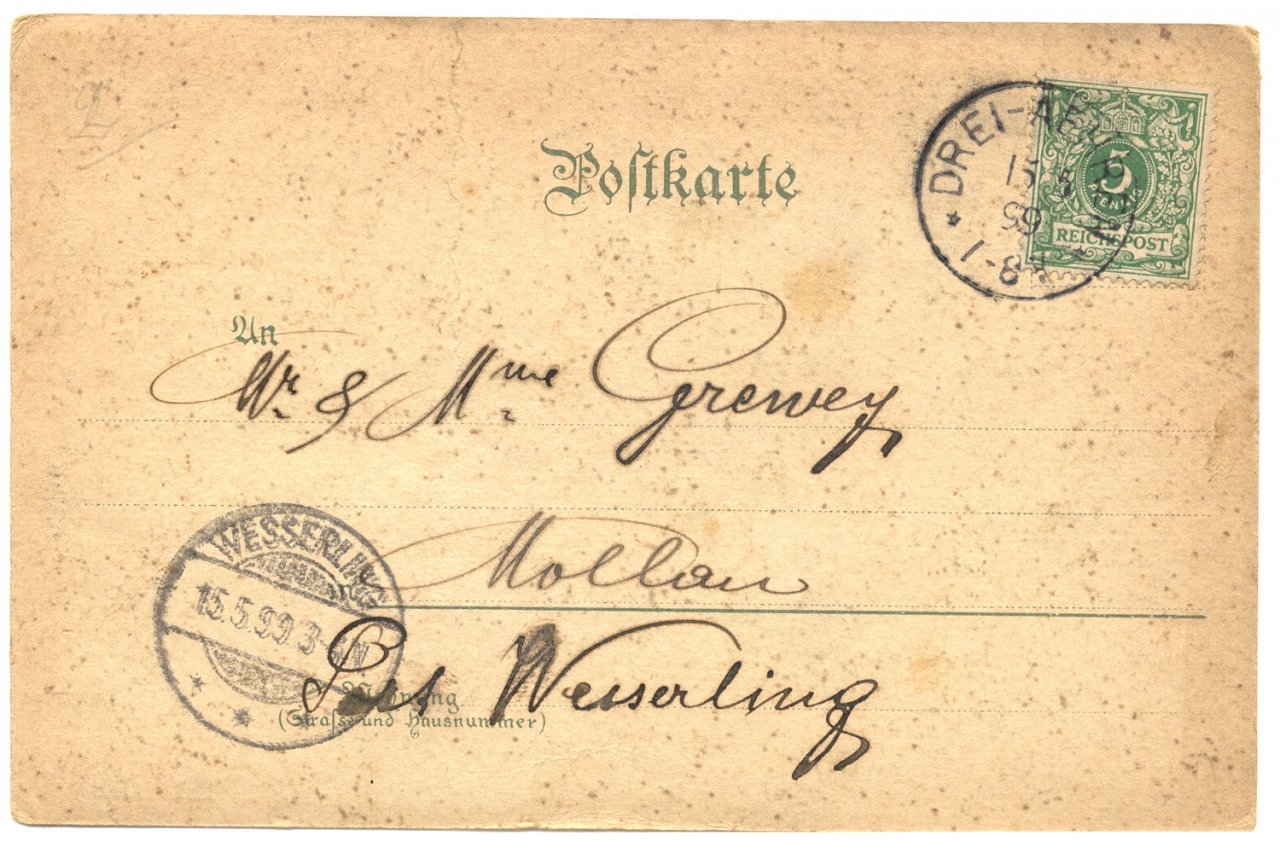 Postkarte
DREI-AEHREN
15 5
99
7-8 V
5
REICHSPOST
An
Mr. & Mme Grewey
Mollau
WESSERLING
15.5.99 3-4N
Post Wesserling
Wohnung
(Straße und Hausnummer)